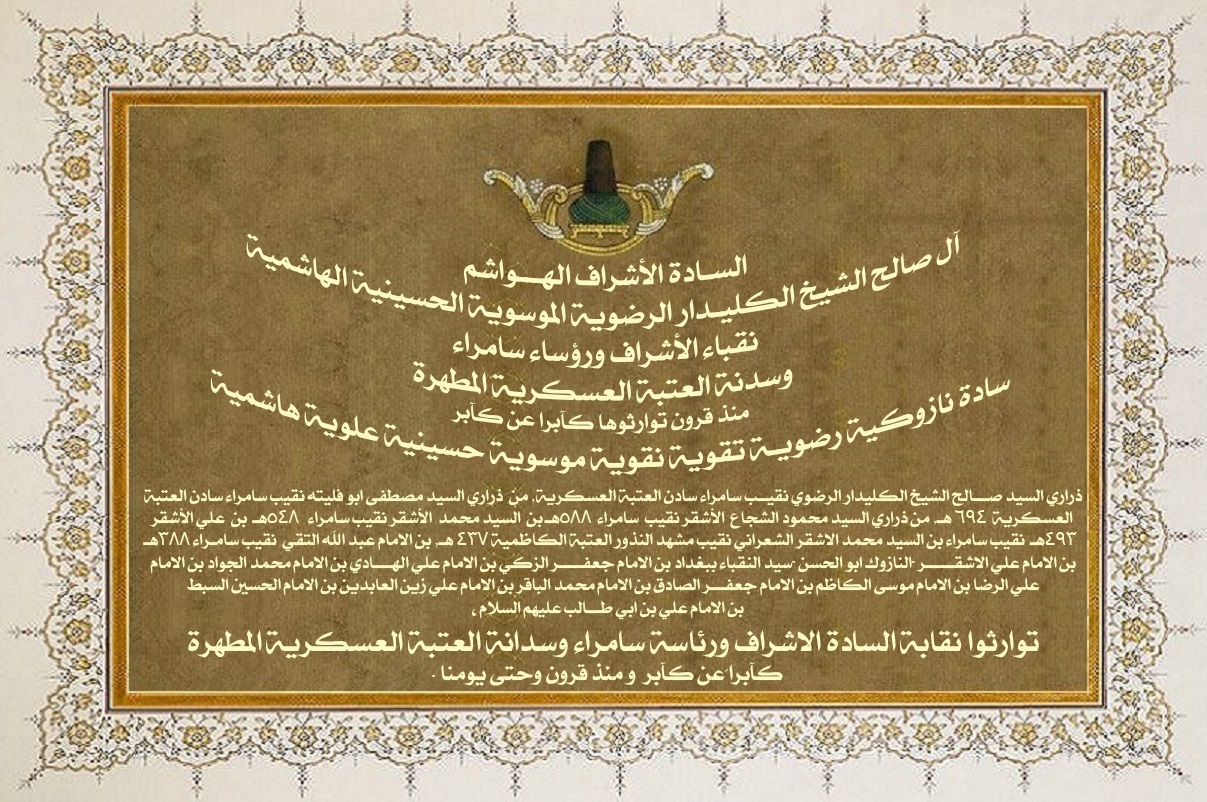 السادة الأشراف الهواشم
آل صالح الشيخ الكليدار الرضوية الموسوية الحسينية الهاشمية
نقباء الأشراف ورؤساء سامراء
وسدنة العتبة العسكرية المطهرة
منذ قرون توارثوها كآبرا عن كآبر
سادة نازوكية رضوية تقوية نقوية موسوية حسينية علوية هاشمية
ذراري السيد صالح الشيخ الكليدار الرضوي نقيب سامراء سادن العتبة العسكرية, من ذراري السيد مصطفى ابو فليته نقيب سامراء سادن العتبة
العسكرية ٦٩٤ هـ, من ذراري السيد محمود الشجاع الأشقر نقيب سامراء ٥٨٨هـ بن السيد محمد الأشقر نقيب سامراء ٥٤٨هـ بن علي الأشقر
٤٩٣هـ نقيب سامراء بن السيد محمد الاشقر الشعراني نقيب مشهد النذور العتبة الكاظمية ٤٣٧ هـ, بن الامام عبد الله التقي نقيب سامراء ٣٨٨هـ
بن الامام علي الاشقر -النازوك ابو الحسن -سيد النقباء ببغداد بن الامام جعفر الزكي بن الامام علي الهادي بن الامام محمد الجواد بن الامام
علي الرضا بن الامام موسى الكاظم بن الامام جعفر الصادق بن الامام محمد الباقر بن الامام علي زين العابدين بن الامام الحسين السبط
بن الامام علي بن ابي طالب عليهم السلام ،
توارثوا نقابة السادة الاشراف ورئاسة سامراء وسدانة العتبة العسكرية المطهرة
كآبرا عن كآبر و منذ قرون وحتى يومنا .